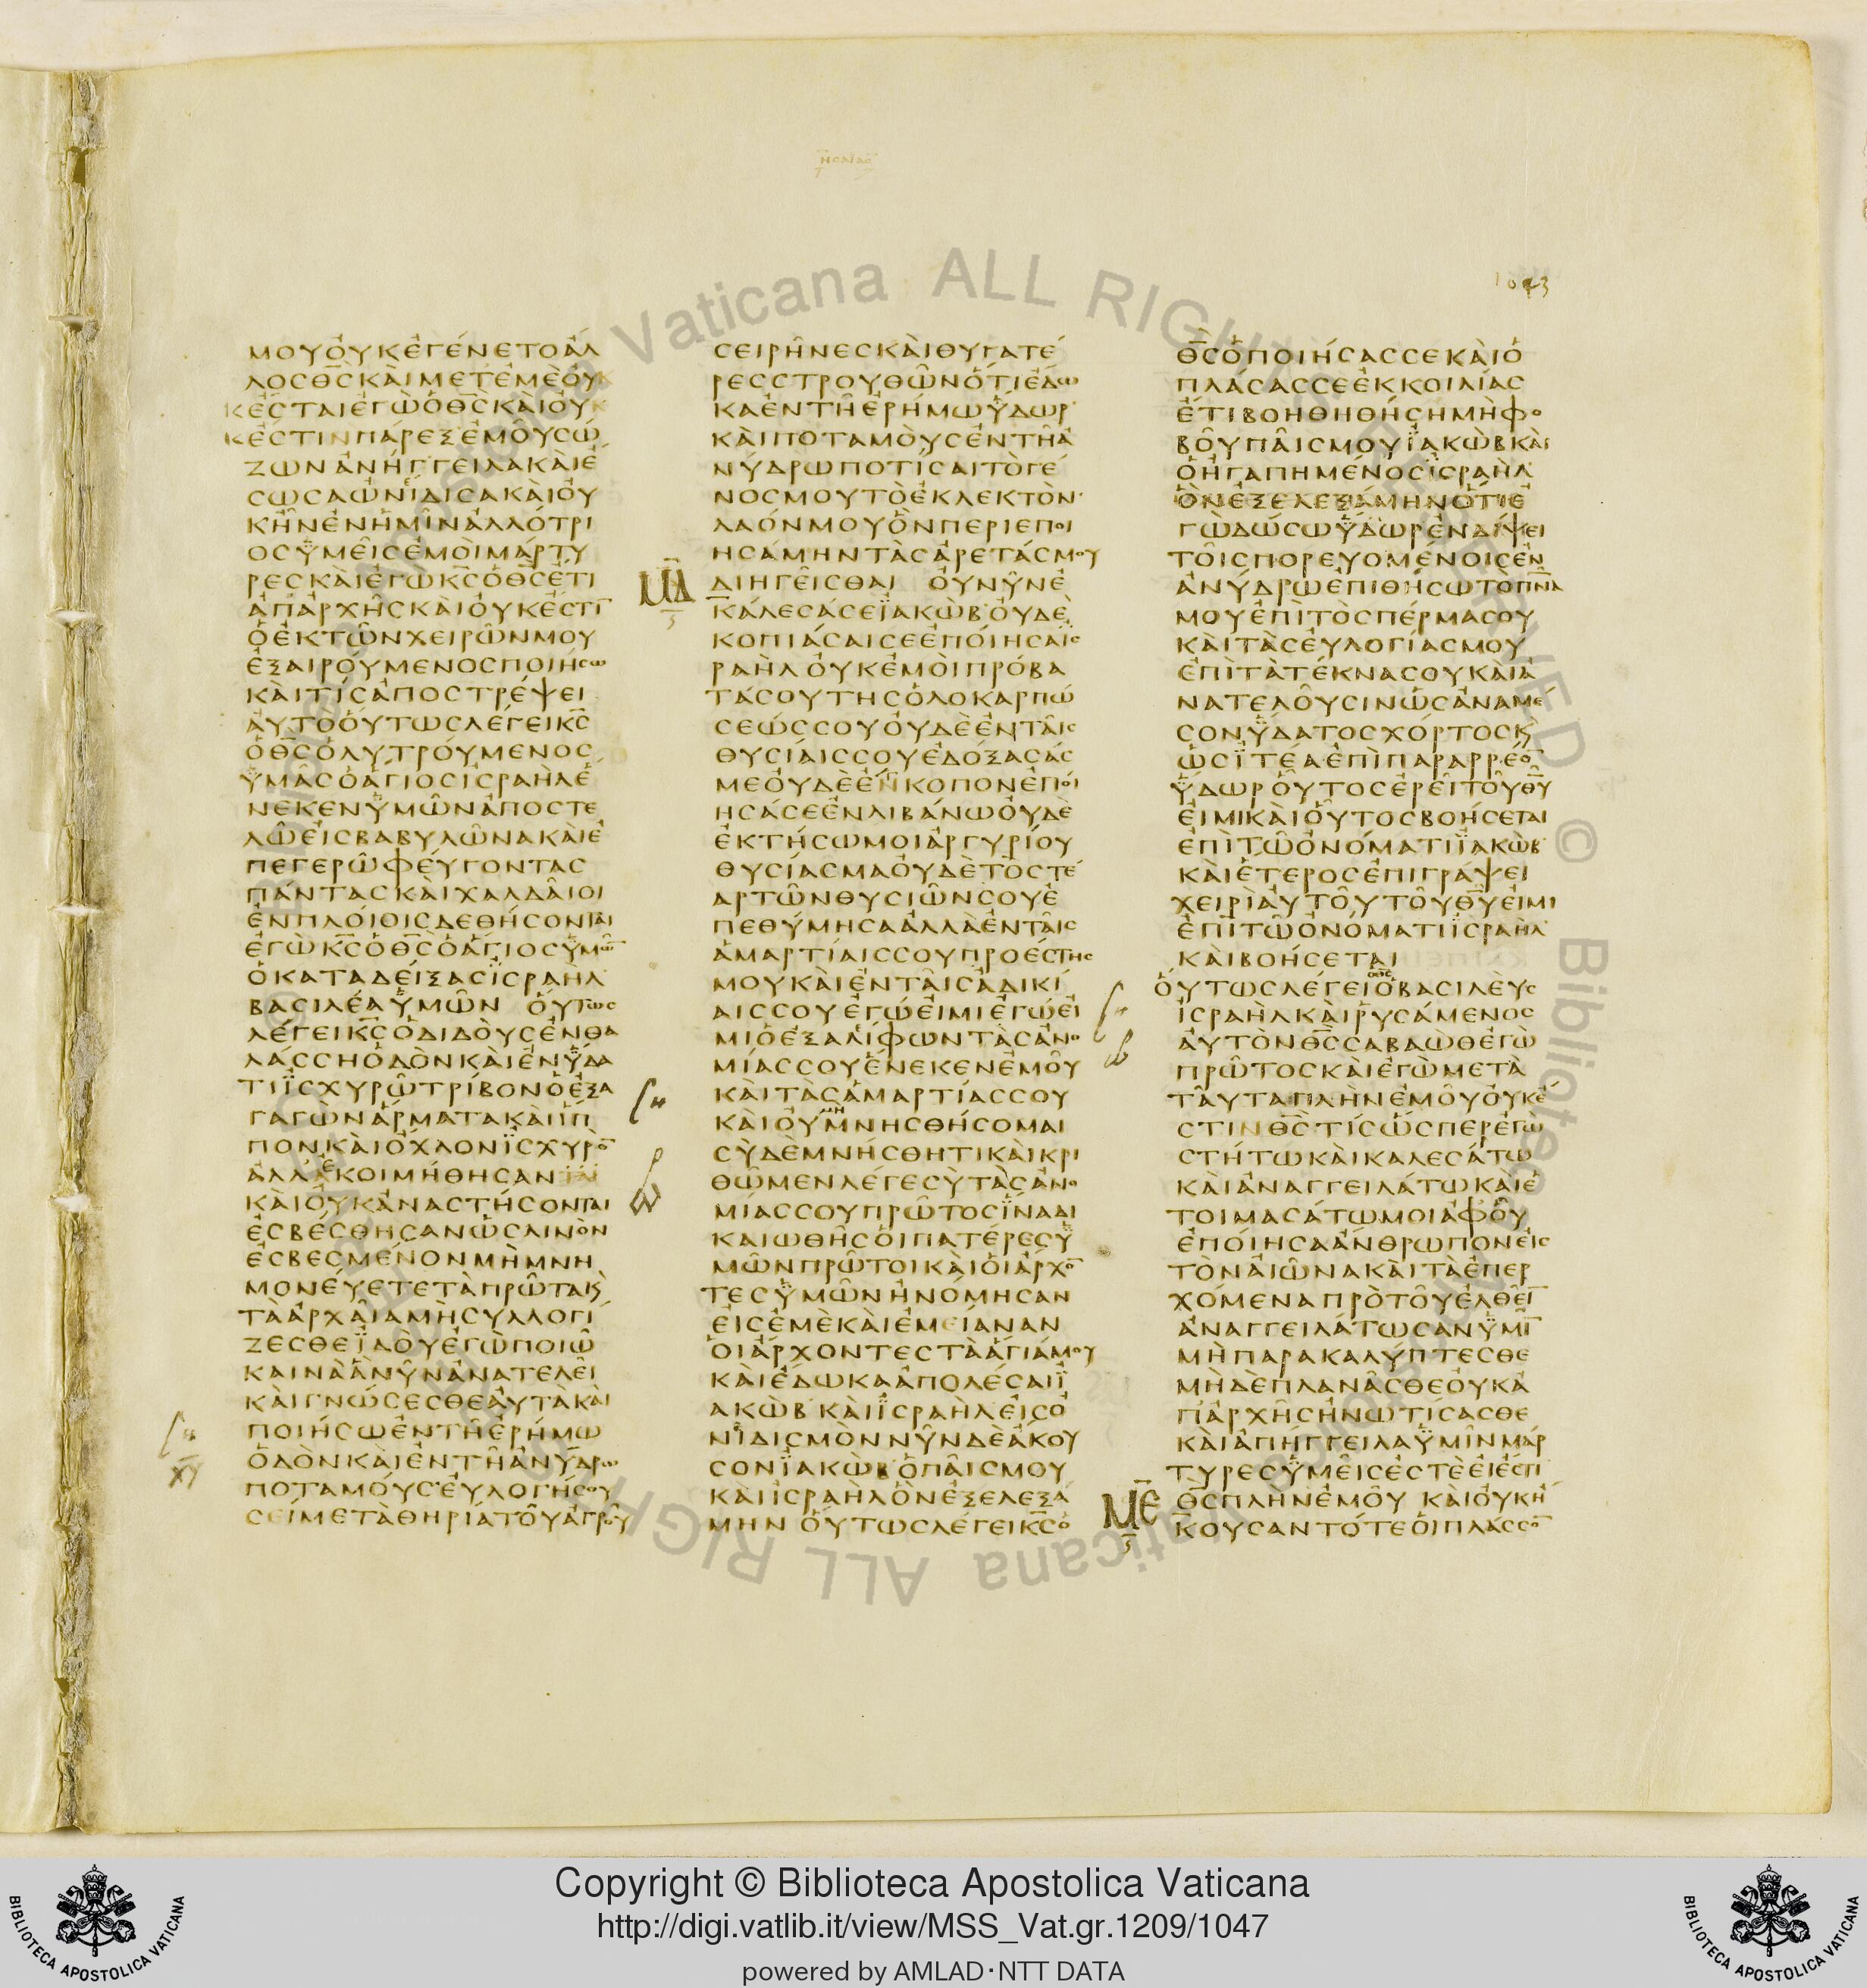 ἩCΑΙΑC
1043
ΜΟΥΟΥΚΕΓΕΝΕΤΟΑΛ
ΛΟCΘ̅C̅ΚΑΙΜΕΤΕΜΕΟΥ
ΚΕCΤΑΙΕΓΩΟΘ̅C̅ΚΑΙΟΥ
ΚΕCΤΙΝΠΑΡΕΞΕΜΟΥCΩ
ΖΩΝΑΝΗΓΓΕΙΛΑΚΑΙΕ
CΩCΑΩΝΙΔΙCΑΚΑΙΟΥ
ΚΗΝΕΝΗΜΙΝΑΛΛΟΤΡΙ
ΟCΫΜΕΙCΕΜΟΙΜΑΡΤΥ
ΡΕCΚΑΙΕΓΩΚ̅C̅ΟΘ̅C̅ΕΤΙ
ΑΠΑΡΧΗCΚΑΙΟΥΚΕCΤΙ̅
ΟΕΚΤΩΝΧΕΙΡΩΝΜΟΥ
ΕΞΑΙΡΟΥΜΕΝΟCΠΟΙΗCΩ
ΚΑΙΤΙCΑΠΟCΤΡΕΨΕΙ
ΑΥΤΟΟΥΤΩCΛΕΓΕΙΚ̅C̅
ΟΘ̅C̅ΟΛΥΤΡΟΥΜΕΝΟC
ΫΜΑCΟΑΓΙΟCΙCΡΑΗΛΕ
ΝΕΚΕΝΫΜΩΝΑΠΟCΤΕ
ΛΩΕΙCΒΑΒΥΛΩΝΑΚΑΙΕ
ΠΕΓΕΡΩΦΕΥΓΟΝΤΑC
ΠΑΝΤΑCΚΑΙΧΑΛΔΑΙΟΙ
ΕΝΠΛΟΙΟΙCΔΕΘΗCΟΝΤΑΙ
ΕΓΩΚ̅C̅ΟΘ̅C̅ΟΑΓΙΟCΫΜΩ̅
ΟΚΑΤΑΔΕΙΞΑCΪCΡΑΗΛ
ΒΑCΙΛΕΑΫΜΩΝ ΟΥΤΩC
ΛΕΓΕΙΚ̅C̅ΟΔΙΔΟΥCΕΝΘΑ
ΛΑCCΗΟΔΟΝΚΑΙΕΝΫΔΑ
ΤΙΪCΧΥΡΩΤΡΙΒΟΝΟΕΞΑ
ΓΑΓΩΝΑΡΜΑΤΑΚΑΙΙΠ
ΠΟΝΚΑΙΟΧΛΟΝΪCΧΥΡΟ̅
ΑΛΛΕΚΟΙΜΗΘΗCΑΝ
ΚΑΙΟΥΚΑΝΑCΤΗCΟΝΤΑΙ
ΕCΒΕCΘΗCΑΝΩCΛΙΝΟΝ
ΕCΒΕCΜΕΝΟΝΜΗΜΝΗ
ΜΟΝΕΥΕΤΕΤΑΠΡΩΤΑΚ
ΤΑΑΡΧΑΙΑΜΗCΥΛΛΟΓΙ
ΖΕCΘΕΪΔΟΥΕΓΩΠΟΙΩ
ΚΑΙΝΑΑΝΥΝΑΝΑΤΕΛΕΙ
ΚΑΙΓΝΩCΕCΘΕΑΥΤΑΚΑΙ
ΠΟΙΗCΩΕΝΤΗΕΡΗΜΩ
ΟΔΟΝΚΑΙΕΝΤΗΑΝΥΔΡΩ
ΠΟΤΑΜΟΥCΕΥΛΟΓΗCΟΥ
CΕΙΜΕΤΑΘΗΡΙΑΤΟΥΑΓΡΟΥ
CΕΙΡΗΝΕCΚΑΙΘΥΓΑΤΕ
ΡΕCCΤΡΟΥΘΩΝΟΤΙΕΔΩ
ΚΑΕΝΤΗΕΡΗΜΩΫΔΩΡ
ΚΑΙΠΟΤΑΜΟΥCΕΝΤΗΑ
ΝΥΔΡΩΠΟΤΙCΑΙΤΟΓΕ
ΝΟCΜΟΥΤΟΕΚΛΕΚΤΟΝ
ΛΑΟΝΜΟΥΟΝΠΕΡΙΕΠΟΙ
ΗCΑΜΗΝΤΑCΑΡΕΤΑCΜΟΥ
ΜΔ ΔΙΗΓΕΙCΘΑΙ ΟΥΝΥΝΕ
ΚΑΛΕCΑCΕΪΑΚΩΒΟΥΔΕ
ΚΟΠΙΑCΑΙCΕΕΠΟΙΗCΑΙC
ΡΑΗΛΟΥΚΕΜΟΙΠΡΟΒΑ
ΤΑCΟΥΤΗCΟΛΟΚΑΡΠΩ
CΕΩCCΟΥΟΥΔΕΕΝΤΑΙC
ΘΥCΙΑΙCCΟΥΕΔΟΞΑCΑC
ΜΕΟΥΔΕΕΝΚΟΠΟΝΕΠΟΙ
ΗCΑCΕΕΝΛΙΒΑΝΩΟΥΔΕ
ΕΚΤΗCΩΜΟΙΑΡΓΥΡΙΟΥ
ΘΥCΙΑCΜΑΟΥΔΕΤΟCΤΕ
ΑΡΤΩΝΘΥCΙΩΝCΟΥΕ
ΠΕΘΥΜΗCΑΑΛΛΑΕΝΤΑΙC
ΑΜΑΡΤΙΑΙCCΟΥΠΡΟΕCΤΗC
ΜΟΥΚΑΙΕΝΤΑΙCΑΔΙΚΙ
ΑΙCCΟΥΕΓΩΕΙΜΙΕΓΩΕΙ
ΜΙΟΕΞΑΛΙΦΩΝΤΑCΑΝΟ
ΜΙΑCCΟΥΕΝΕΚΕΝΕΜΟΥ
ΚΑΙΤΑCΑΜΑΡΤΙΑCCΟΥ
ΚΑΙΟΥΜΗΜΝΗCΘΗCΟΜΑΙ
CΥΔΕΜΝΗCΘΗΤΙΚΑΙΚΡΙ
ΘΩΜΕΝΛΕΓΕCΥΤΑCΑΝΟ
ΜΙΑCCΟΥΠΡΩΤΟCΪΝΑΔΙ
ΚΑΙΩΘΗCΟΙΠΑΤΕΡΕCΫ
ΜΩΝΠΡΩΤΟΙΚΑΙΟΙΑΡΧΟ̅
ΤΕCΫΜΩΝΗΝΟΜΗCΑΝ
ΕΙCΕΜΕΚΑΙΕΜΕΙΑΝΑΝ
ΟΙΑΡΧΟΝΤΕCΤΑΑΓΙΑΜΟΥ
ΚΑΙΕΔΩΚΑΑΠΟΛΕCΑΙΪ
ΑΚΩΒΚΑΙΪCΡΑΗΛΕΙCΟ
ΝΙΔΙCΜΟΝΝΥΝΔΕΑΚΟΥ
CΟΝΪΑΚΩΒΟΠΑΙCΜΟΥ
ΚΑΙΙCΡΑΗΛΟΝΕΞΕΛΕΞΑ
ΜΗΝ ΟΥΤΩCΛΕΓΕΙΚ̅C̅Ο
Θ̅C̅ΟΠΟΙΗCΑCCΕΚΑΙΟ
ΠΛΑCΑCCΕΕΚΚΟΙΛΙΑC
ΕΤΙΒΟΗΘΗΘΗCΗΜΗΦΟ
ΒΟΥΠΑΙCΜΟΥΪΑΚΩΒΚΑΙ
ΟΗΓΑΠΗΜΕΝΟCΪCΡΑΗΛ
ΟΝΕΞΕΛΕΞΑΜΗΝΟΤΙΕ
ΓΩΔΩCΩΫΔΩΡΕΝΔΙΨΕΙ
ΤΟΙCΠΟΡΕΥΟΜΕΝΟΙCΕΝ
ΑΝΥΔΡΩΕΠΙΘΗCΩΤΟΠ̅Ν̅Α̅
ΜΟΥΕΠΙΤΟCΠΕΡΜΑCΟΥ
ΚΑΙΤΑCΕΥΛΟΓΙΑCΜΟΥ
ΕΠΙΤΑΤΕΚΝΑCΟΥΚΑΙΑ
ΝΑΤΕΛΟΥCΙΝΩCΑΝΑΜΕ
CΟΝΫΔΑΤΟCΧΟΡΤΟCΚ
ΩCΪΤΕΑΕΠΙΠΑΡΑΡΡΕΟ̅
ΫΔΩΡΟΥΤΟCΕΡΕΙΤΟΥΘ̅Υ̅
ΕΙΜΙΚΑΙΟΥΤΟCΒΟΗCΕΤΑΙ
ΕΠΙΤΩΟΝΟΜΑΤΙΪΑΚΩΒ
ΚΑΙΕΤΕΡΟCΕΠΙΓΡΑΨΕΙ
ΧΕΙΡΙΑΥΤΟΥΤΟΥΘ̅Υ̅ΕΙΜΙ
ΕΠΙΤΩΟΝΟΜΑΤΙΪCΡΑΗΛ
ΚΑΙΒΟΗCΕΤΑΙ
ΟΥΤΩCΛΕΓΕΙΟΘ̅C̅ΟΒΑCΙΛΕΥC
ΙCΡΑΗΛΚΑΙΡΥCΑΜΕΝΟC
ΑΥΤΟΝΘ̅C̅CΑΒΑΩΘΕΓΩ
ΠΡΩΤΟCΚΑΙΕΓΩΜΕΤΑ
ΤΑΥΤΑΠΛΗΝΕΜΟΥΟΥΚΕ
CΤΙΝΘ̅C̅ΤΙCΩCΠΕΡΕΓΩ
CΤΗΤΩΚΑΙΚΑΛΕCΑΤΩ
ΚΑΙΑΝΑΓΓΕΙΛΑΤΩΚΑΙΕ
ΤΟΙΜΑCΑΤΩΜΟΙΑΦΟΥ
ΕΠΟΙΗCΑΑΝΘΡΩΠΟΝΕΙC
ΤΟΝΑΙΩΝΑΚΑΙΤΑΕΠΕΡ
ΧΟΜΕΝΑΠΡΟΤΟΥΕΛΘΕΙ̅
ΑΝΑΓΓΕΙΛΑΤΩCΑΝΫΜΙ̅
ΜΗΠΑΡΑΚΑΛΥΠΤΕCΘΕ
ΜΗΔΕΠΛΑΝΑCΘΕΟΥΚΑ
ΠΑΡΧΗCΗΝΩΤΙCΑCΘΕ
ΚΑΙΑΠΗΓΓΕΙΛΑΫΜΙΝΜΑΡ
ΤΥΡΕCΫΜΕΙCΕCΤΕΕΙΕCΤΙ
ΜΕ Θ̅C̅ΠΛΗΝΕΜΟΥ ΚΑΙΟΥΚΗ
ΚΟΥCΑΝΤΟΤΕΟΙΠΛΑCCΟ̅
Vaticana ALL RIGHTS RESERVED © Biblioteca
Vaticana ALL RIGHTS RESERVED
BIBLIOTECA APOSTOLICA VATICANA
Copyright © Biblioteca Apostolica Vaticana
http://digi.vatlib.it/view/MSS_Vat.gr.1209/1047
powered by AMLAD·NTT DATA
BIBLIOTECA APOSTOLICA VATICANA